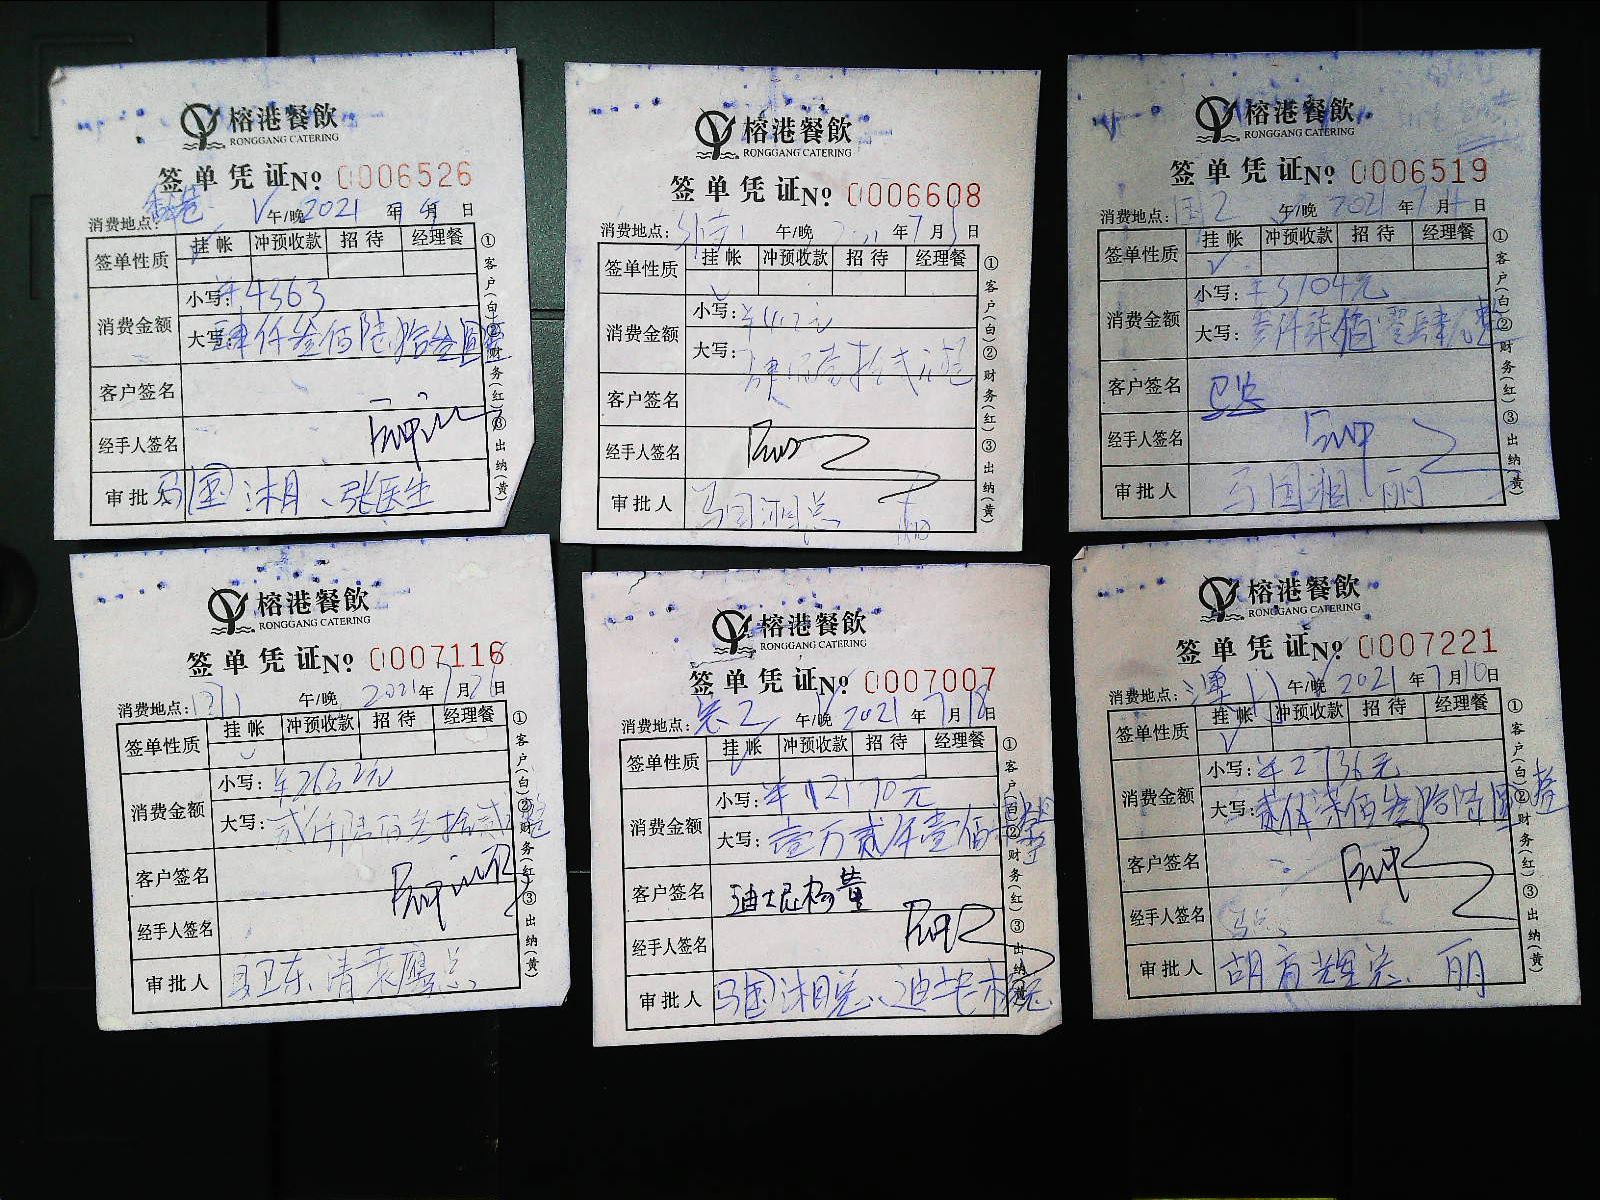 榕港餐飲
RONGGANG CATERING
签单凭证No 0006526
消费地点: 香港 午/晚 2021 年 7 月 日
签单性质 挂帐 冲预收款 招待 经理餐
消费金额
小写: ¥4363
大写: 肆仟叁佰陆拾叁圆整
客户签名
经手人签名
审批人 马国湘、张医生
①客户(白)②财务(红)③出纳(黄)
榕港餐飲
RONGGANG CATERING
签单凭证No 0006608
消费地点: 午/晚 年 7 月 3 日
签单性质 挂帐 冲预收款 招待 经理餐
消费金额
小写: ¥412元
大写: 肆佰壹拾贰元整
客户签名
经手人签名
审批人 马国湘总
①客户(白)②财务(红)③出纳(黄)
榕港餐飲
RONGGANG CATERING
签单凭证No 0006519
消费地点: 国2 午/晚 2021 年 7 月 4 日
签单性质 挂帐 冲预收款 招待 经理餐
消费金额
小写: ¥3704元
大写: 叁仟柒佰零肆元整
客户签名
经手人签名
审批人 马国湘 丽
①客户(白)②财务(红)③出纳(黄)
榕港餐飲
RONGGANG CATERING
签单凭证No 0007116
消费地点: 国1 午/晚 2021 年 7 月 21 日
签单性质 挂帐 冲预收款 招待 经理餐
消费金额
小写: ¥2632元
大写: 贰仟陆佰叁拾贰元整
客户签名
经手人签名
审批人 卫东 请袁鹰总
①客户(白)②财务(红)③出纳(黄)
榕港餐飲
RONGGANG CATERING
签单凭证No 0007007
消费地点: 宴2 午/晚 2021 年 7 月 18 日
签单性质 挂帐 冲预收款 招待 经理餐
消费金额
小写: ¥12170元
大写: 壹万贰仟壹佰柒拾
客户签名 迪士尼杨董
经手人签名
审批人 马国湘总、迪士尼杨总
①客户(白)②财务(红)③出纳(黄)
榕港餐飲
RONGGANG CATERING
签单凭证No 0007221
消费地点: 澳门 午/晚 2021 年 7 月 10 日
签单性质 挂帐 冲预收款 招待 经理餐
消费金额
小写: ¥2736元
大写: 贰仟柒佰叁拾陆圆整
客户签名
经手人签名 马总
审批人 胡育辉总、丽
①客户(白)②财务(红)③出纳(黄)